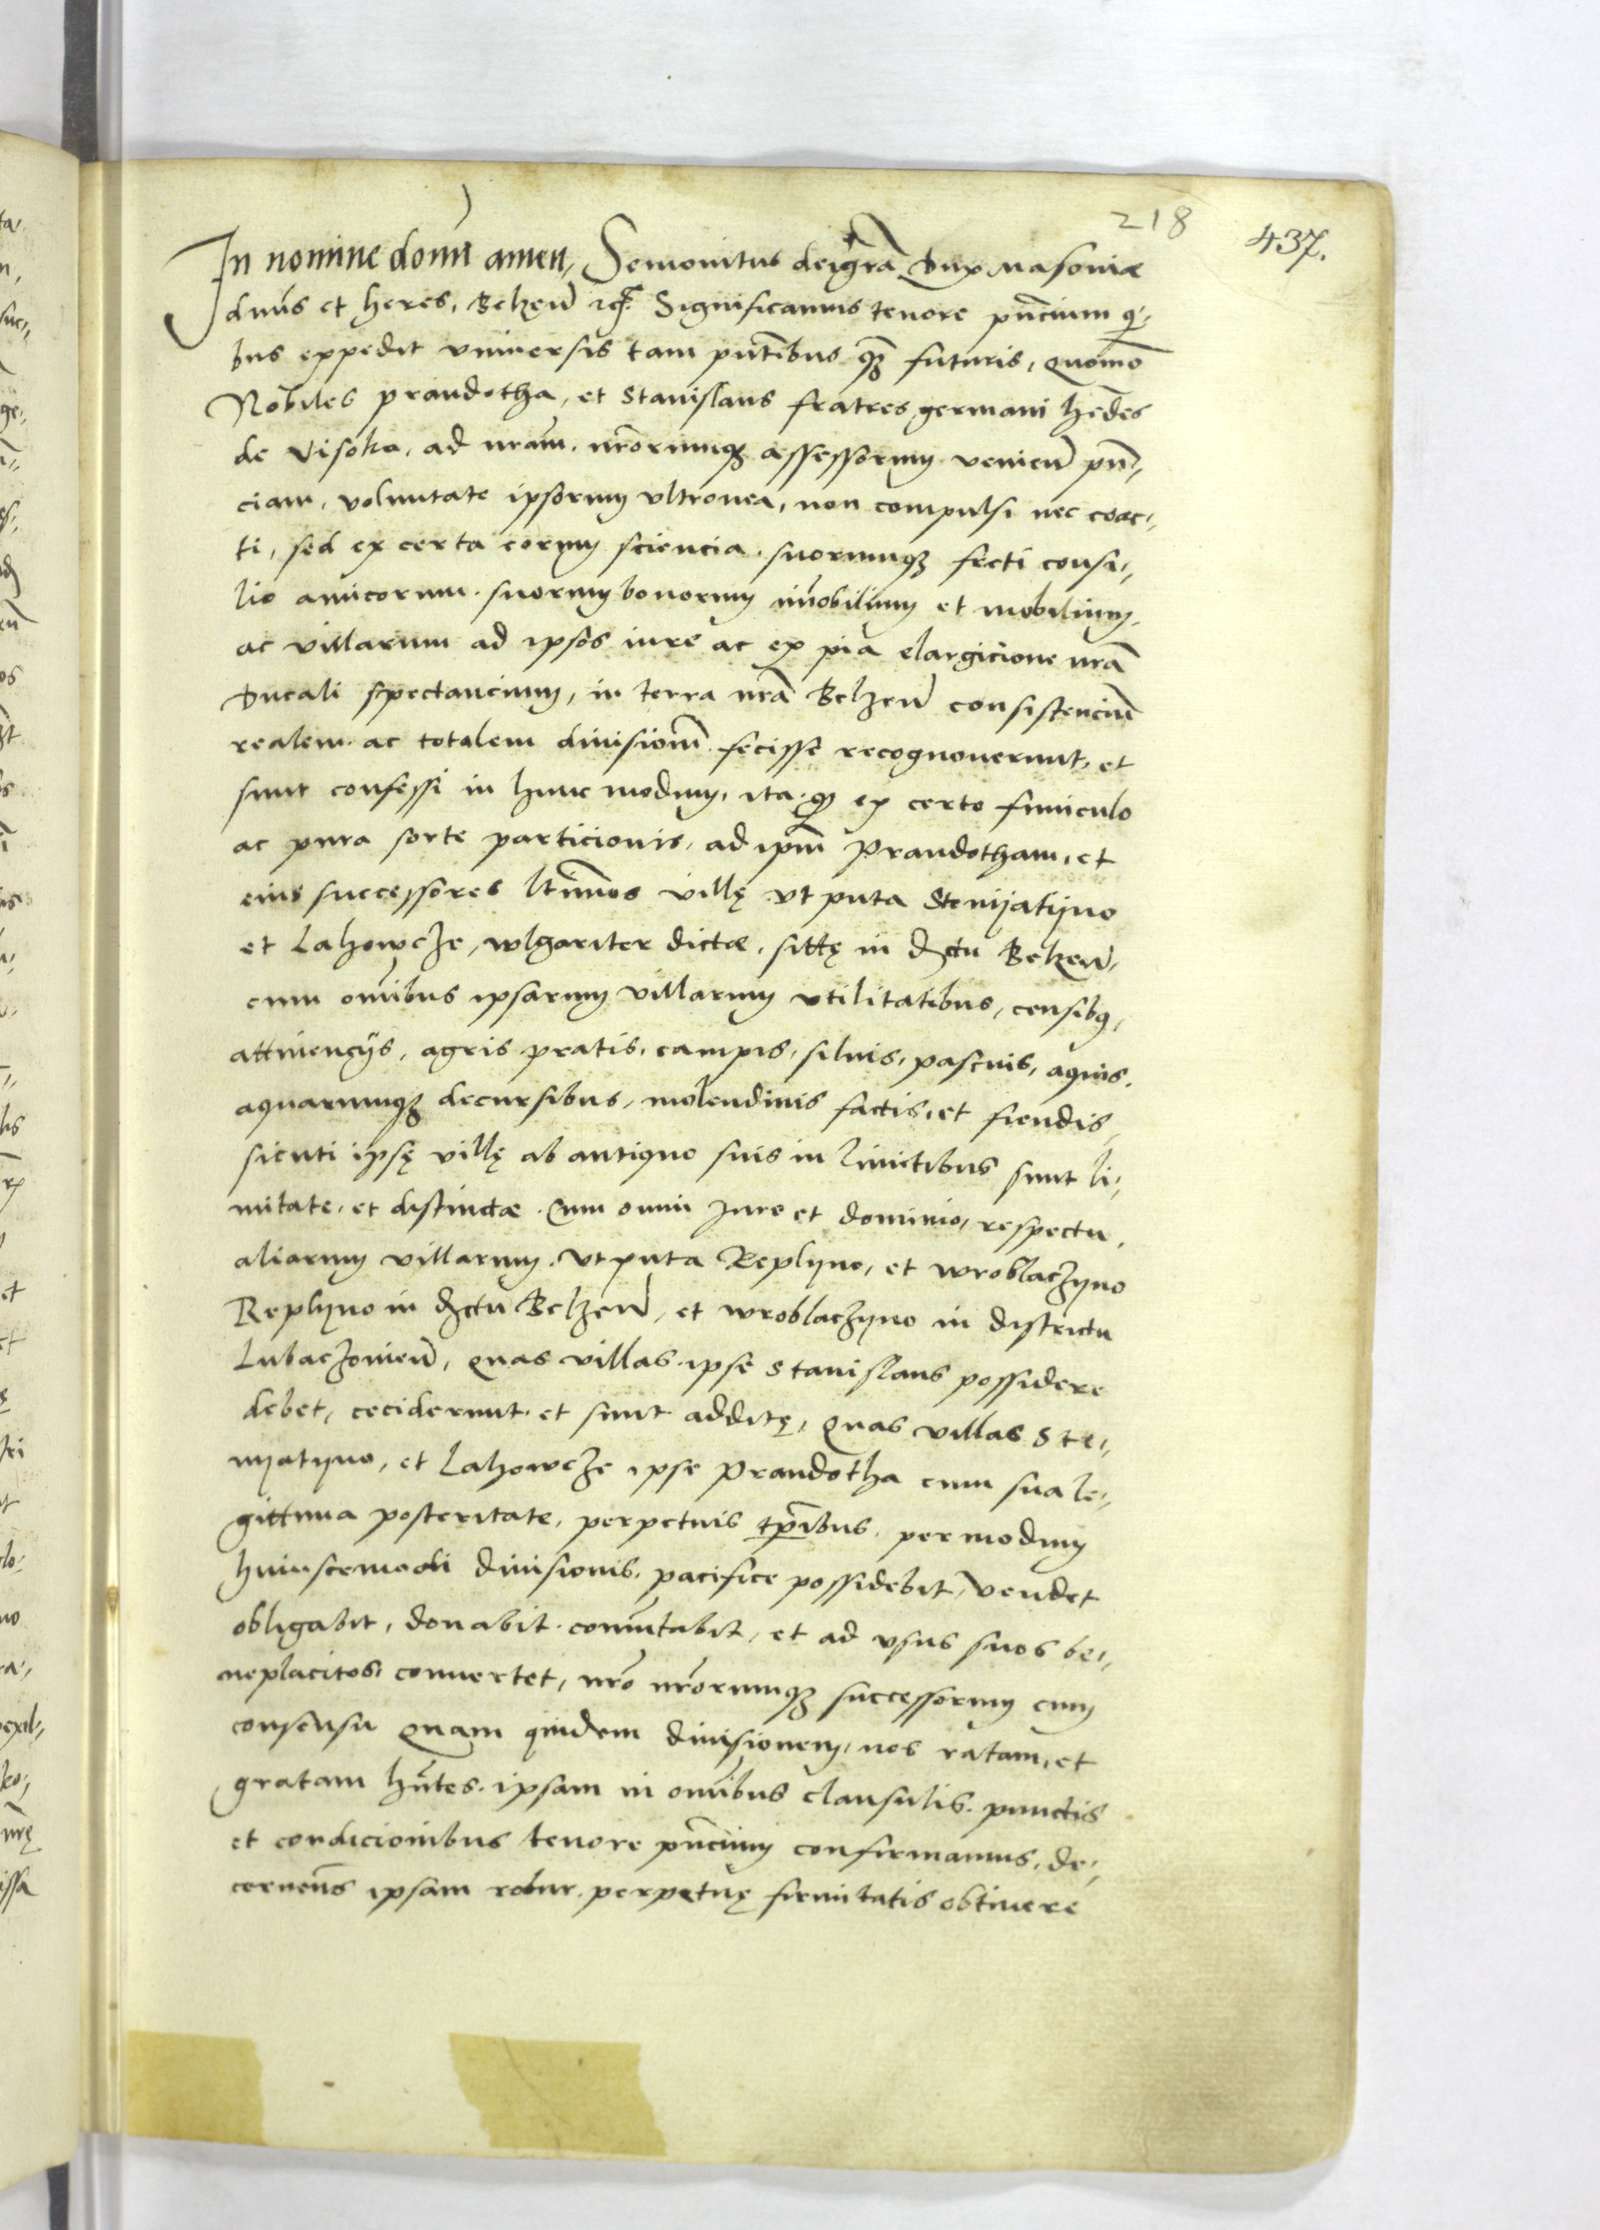 218
437.
In nomine domi amen, Semovitus dei grã Dux Masoviæ
dnũs et heres, Belzeñ ꝛcꝭ Significamus tenore pñcium qͥ-
bus expedit universis tam pñtibus qꝫ futuris, Quomõ
Nobiles Prandotha, et Stanislaus fratres germani hedes
de Visoka, ad nrãm, nrõrumqꝫ assessorum venieñ pñ-
ciam, voluntate ipsorum ultronea, non compulsi nec coac-
ti, sed ex certa eorum sciencia, suorumqꝫ freti consi-
lio amicorum, suorum bonorum imobilium et mobilium,
ac villarum ad ipsos iure ac ex pia elargicione nrã
Ducali spectancium, in terra nrã Belzeñ consistenciũ
realem ac totalem divisionẽ fecisse recognoverunt, et
sunt confessi in hunc modum, ita qꝫ ex certo funiculo
ac pura sorte particionis, ad ipm̃ Prandotham, et
eius successores ltimos villę ut puta Stenijatijno
et Lahowcze, wlgariter dictæ, sittę in dictu Belzeñ,
cum omibus ipsarum villarum utilitatibus, censibꝫ,
attinencijs, agris pratis, campis, silvis, pascuis, aquis,
aquarumqꝫ decursibus, molendinis factis, et fiendis,
sicuti ipsę villę ab antiquo suis in limitibus sunt li-
mitate, et distinctæ. Cum omni iure et dominio, respectu,
aliarum villarum, ut puta Replijno, et wroblaczijno
Replijno in dictu Belzeñ, et wroblaczijno in districtu
Lubaczovieñ, quas villas ipse Stanislaus possidere
debet, ceciderunt et sunt additę, Quas villas Ste-
nijatijno, et Lahowcze ipse Prandotha cum sua le-
gittima posteritate, perpetuis tpĩbus, per modum
huiuscemodi divisionis, pacifice possidebit, vendet
obligabit, donabit comutabit, et ad usus suos be-
neplacitos convertet, nrõ nrõrumqꝫ successorum cum
consensu Quam quidem divisionem, nos ratam, et
gratam hñtes, ipsam in omibus clausulis, punctis
et condicionibus tenore pñcium confirmamus, de-
cernens ipsam robur perpetuę firmitatis obtinere